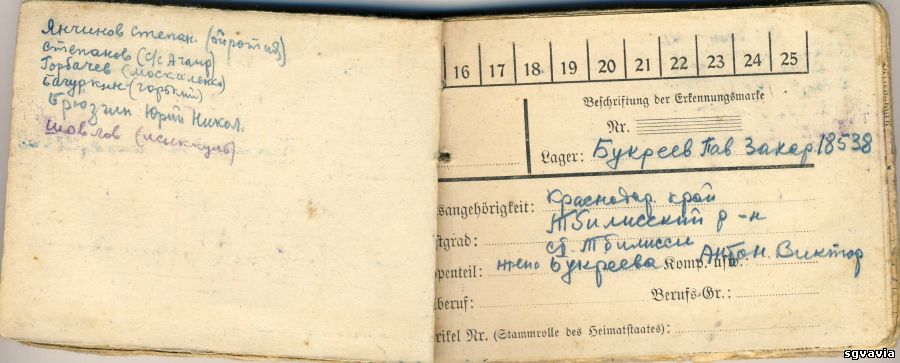 Янчинов Степан (ойротия)
Степанов (с/с Ачаир)
Горбачев (москаленко)
Бачуркин (горький)
Брюзгин Юрий Никол.
Шовлов
16 17 18 19 20 21 22 23 24 25
Beschriftung der Erkennungsmarke
Nr.
Lager: Букреев Пав Захар 18538
sangehörigkeit: Краснодар. край
Тбилисский р-н
stgrad: ст. Тбилисси
ppenteil: жена Букреева Komp. usw. Антон. Виктор
lberuf: Berufs-Gr.:
rikel Nr. (Stammrolle des Heimatstaates):
sgvavia